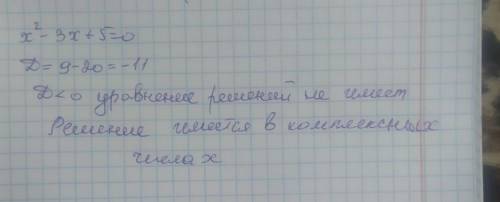 x² - 3x + 5 = 0
D = 9 - 20 = -11
D < 0 уравнение решений не имеет
Решение имеется в комплексных
числах